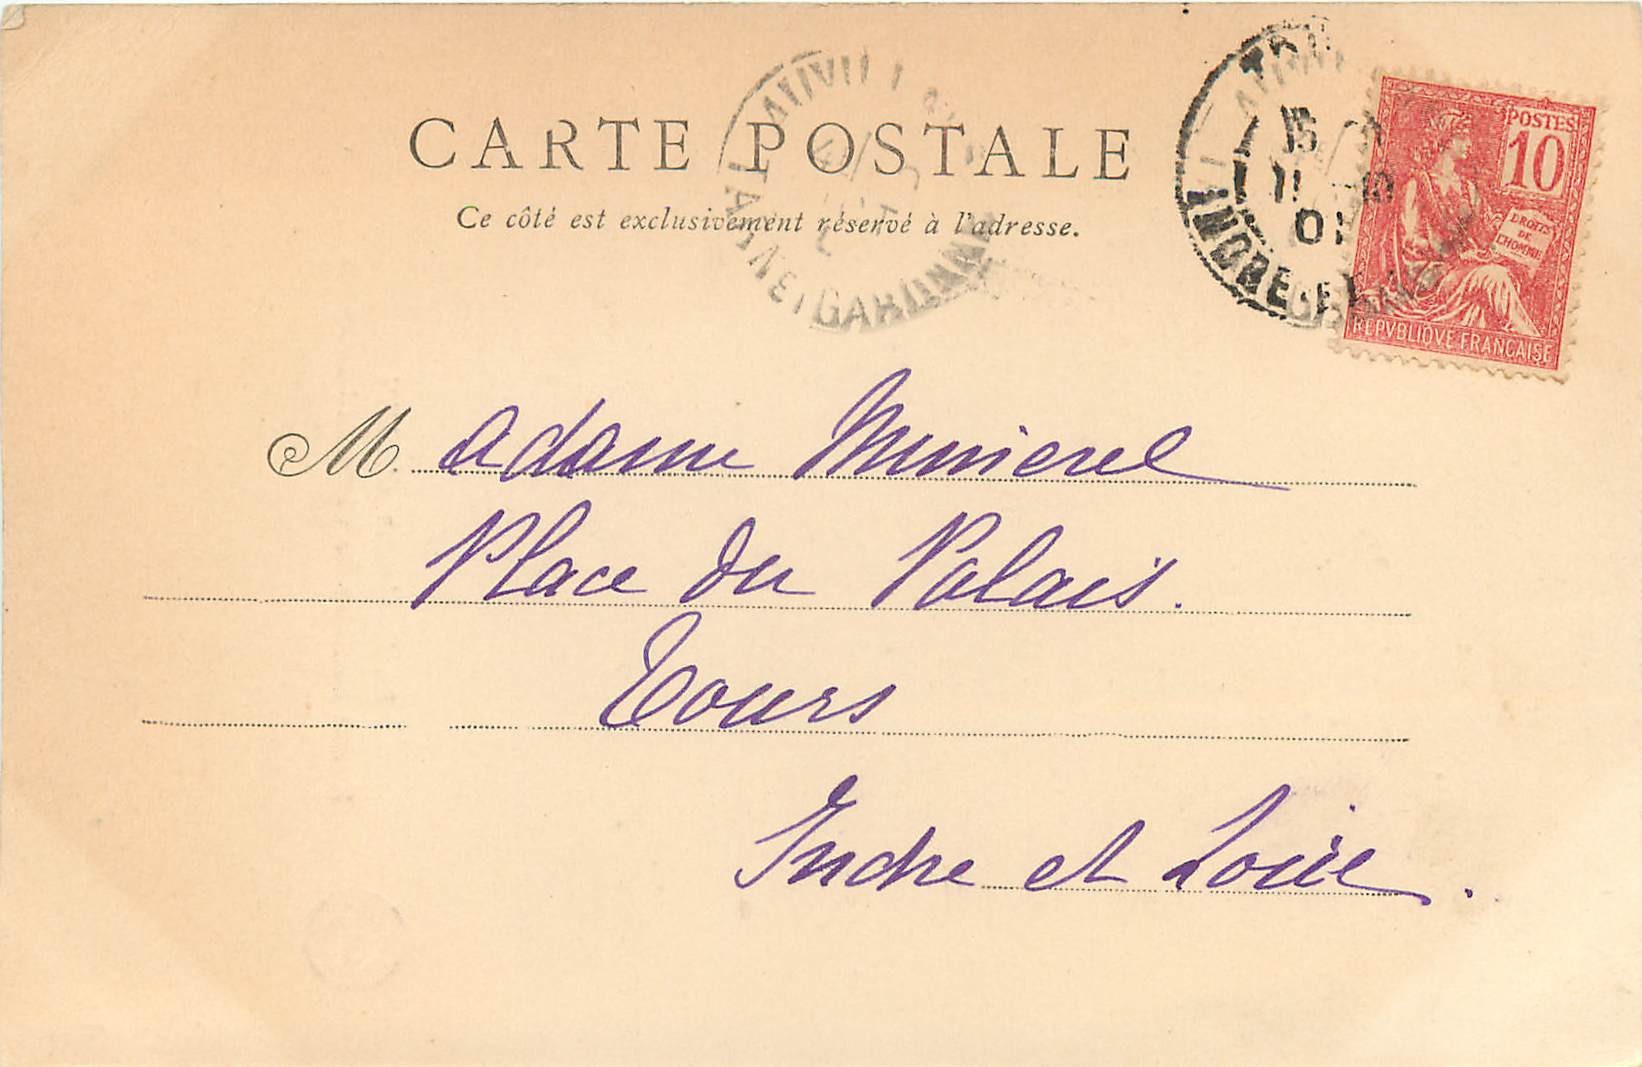 CARTE POSTALE
Ce côté est exclusivement réservé à l'adresse.
POSTES
10
DROITS
DE
L'HOMME
REPVBLIQVE FRANCAISE
INDRE-ET
01
TARN-ET-GARONNE
M. adame
Place du Palais.
Tours
Indre et Loire.